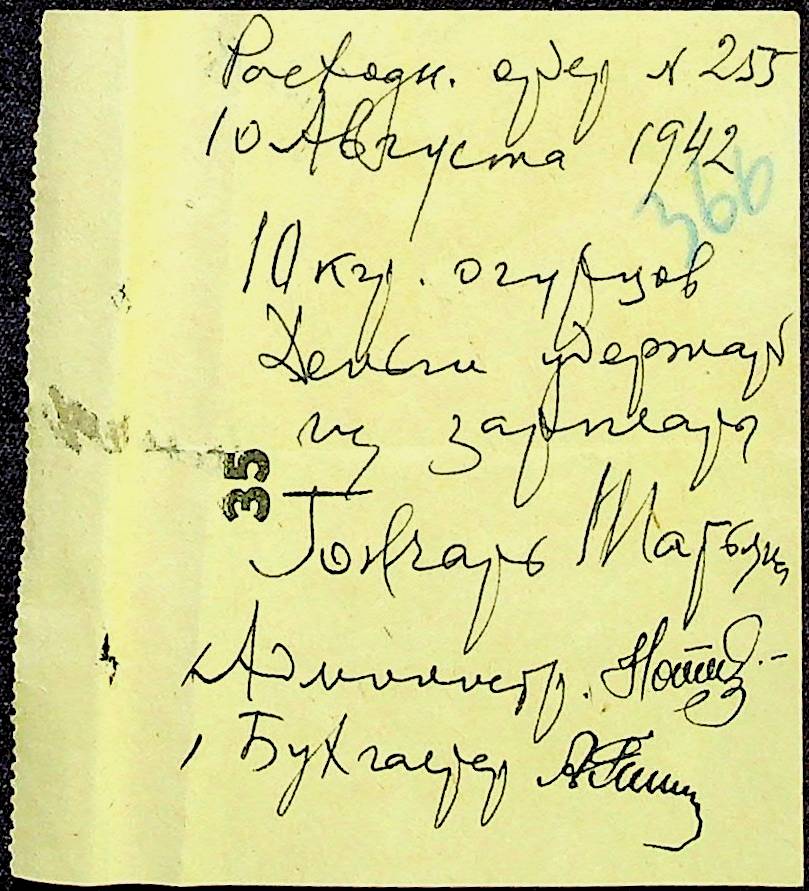 Расходн. ордер N 255
10 Августа 1942
366
10 кгр. огурцов
Деньги удержать
из зарплаты
35
Гончарь Марьяны
Администр.
Бухгалтер